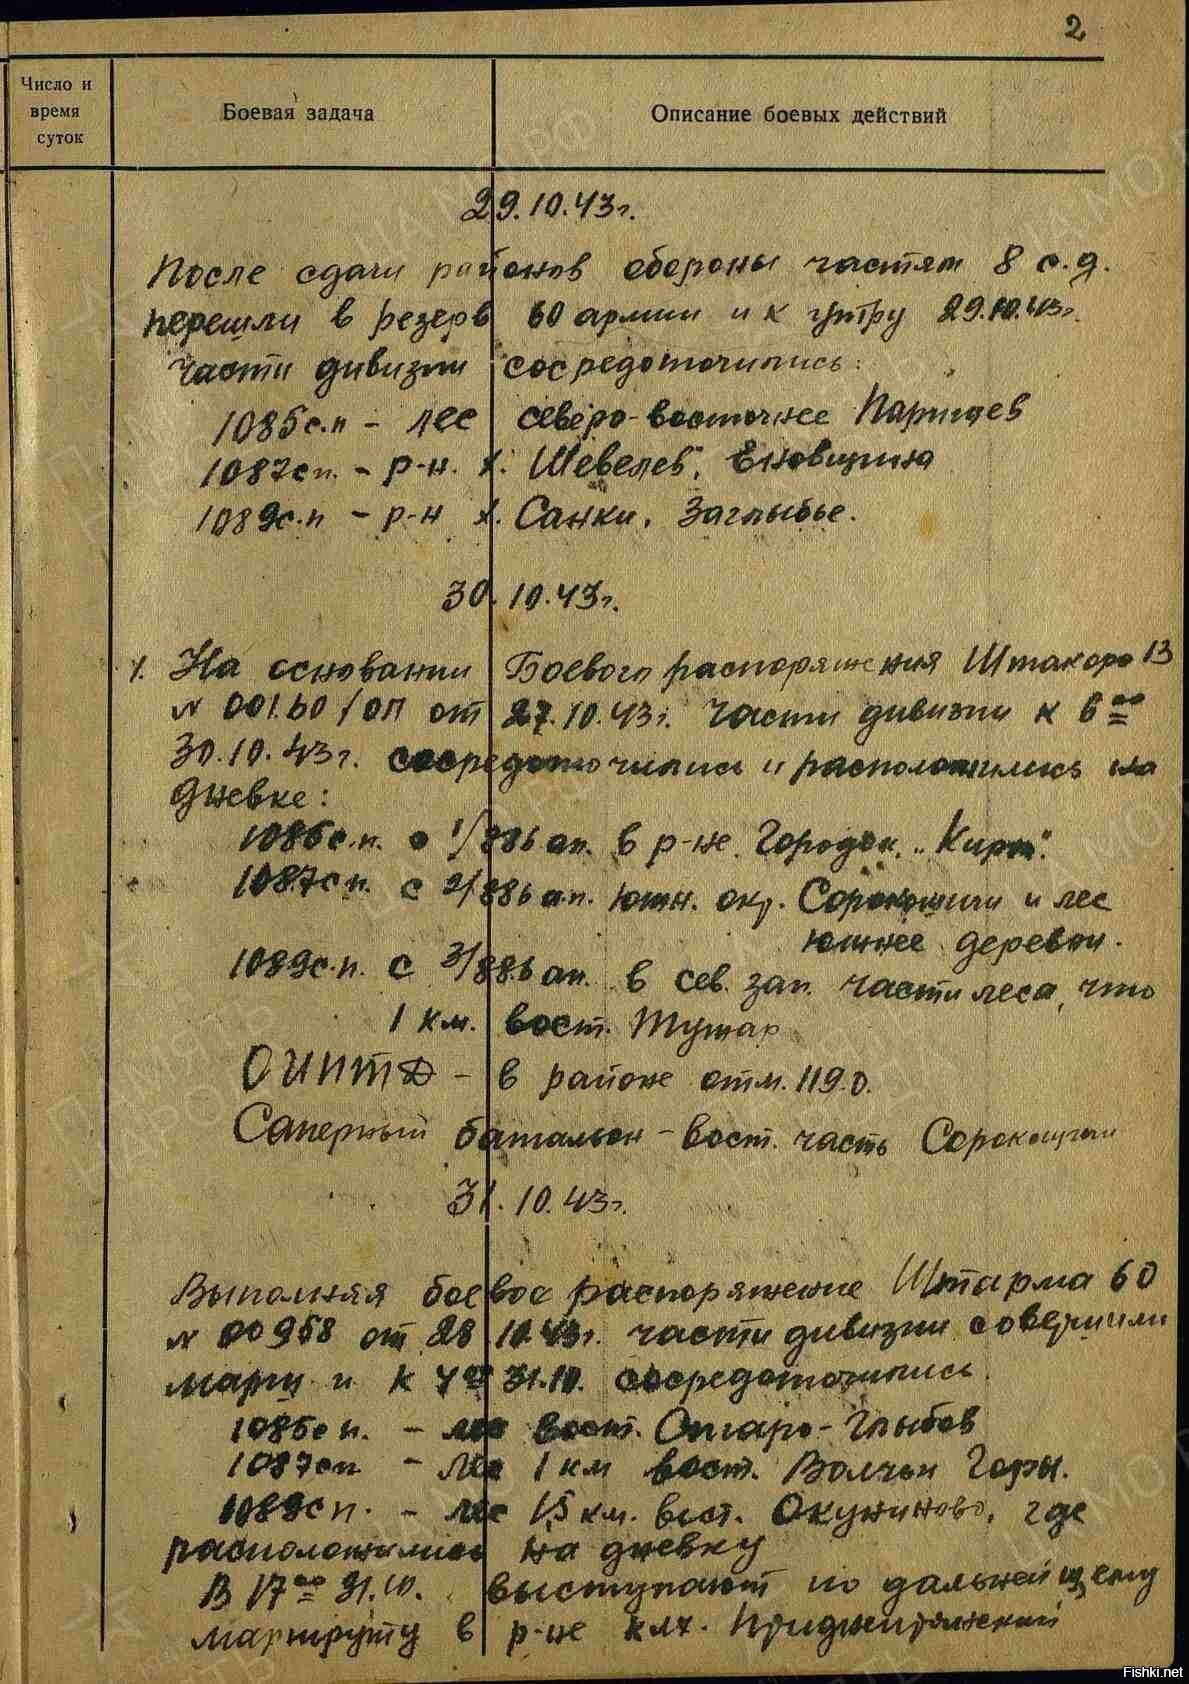 2
Число и
время
суток
Боевая задача
Описание боевых действий
29.10.43г.
После сдачи районов обороны частям 8 с.д.
перешли в резерв 60 армии и к утру 29.10.43г.
части дивизии сосредоточились:
1085с.п - лес северо-восточнее Паришев
1087сп. - р-н. х. Шевелев,
1089с.п - р-н х. Санки, Заглыбье.
30.10.43г.
1. На основании Боевого распоряжения Штакора 13
№ 00160/оп от 27.10.43г. части дивизии к 6 00
30.10.43г. сосредоточились и расположились на
дневке:
1085с.п. с 1/886 ап. в р-не. Городок,
1087сп. с 2/886 ап. южн. окр. Сорокошичи и лес
южнее деревни.
1089с.п. с 3/886 ап. в сев. зап. части леса, что
1 км. вост. Тужар
ОИПТД - в районе отм. 119.0.
Саперный батальон - вост. часть Сорокошичи
31.10.43г.
Выполняя боевое распоряжение Штарма 60
№ 00958 от 28.10.43г. части дивизии совершили
марш и к 7 00 31.10. сосредоточились.
1085с п. - лес вост. Старо-Глыбов
1087сп - лес 1 км вост. Волчьи Горы.
1089с п. - лес 1,5 км. вост. Окуниново, где
расположились на дневку
В 17 00 31.10. выступают по дальнейшему
маршруту в р-не клх. Приднепрянский
Fishki.net